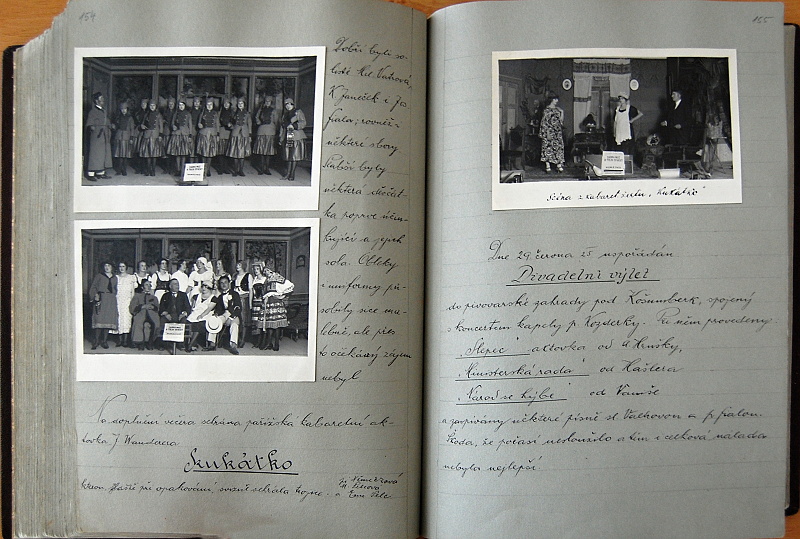 154
Dobří byli so-
listé Hel. Vaňová,
K. Janeček i Jos.
Fiala; rovněž
některé sbory
Slabší byly
některá děvčát-
ka poprvé účin-
kující a jejich
sola. Obleky
i uniformy pů-
sobily sice ma-
lebně, ale přes
to očekávaný zájem
nebyl
Na doplnění večera sehrána pařížská kabaretní ak-
tovka J. Wanderera
Kukátko
při opakování, svižně sehrála
165
Scéna z kabaret. žertu „Kukátko“
Dne 29. června 25 uspořádán
Divadelní výlet
do pivovarské zahrady pod Košumberk, spojený
s koncertem kapely p. Kozderky. Při něm provedeny:
„Slepec“ aktovka od Hrušky,
„Ministerská rada“ od Haštera
„Národ se hýbe“ od
a zazpívány některé písně sl. a p. Fialou.
Škoda, že počasí nesloužilo a tím i celková nálada
nebyla nejlepší.